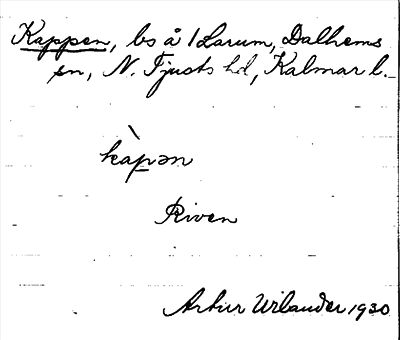 Kappen, bs å 1 Larum, Dalhems
sn, N. Tjusts hd, Kalmar l.
kàpən
Riven
Artur Wilander 1930